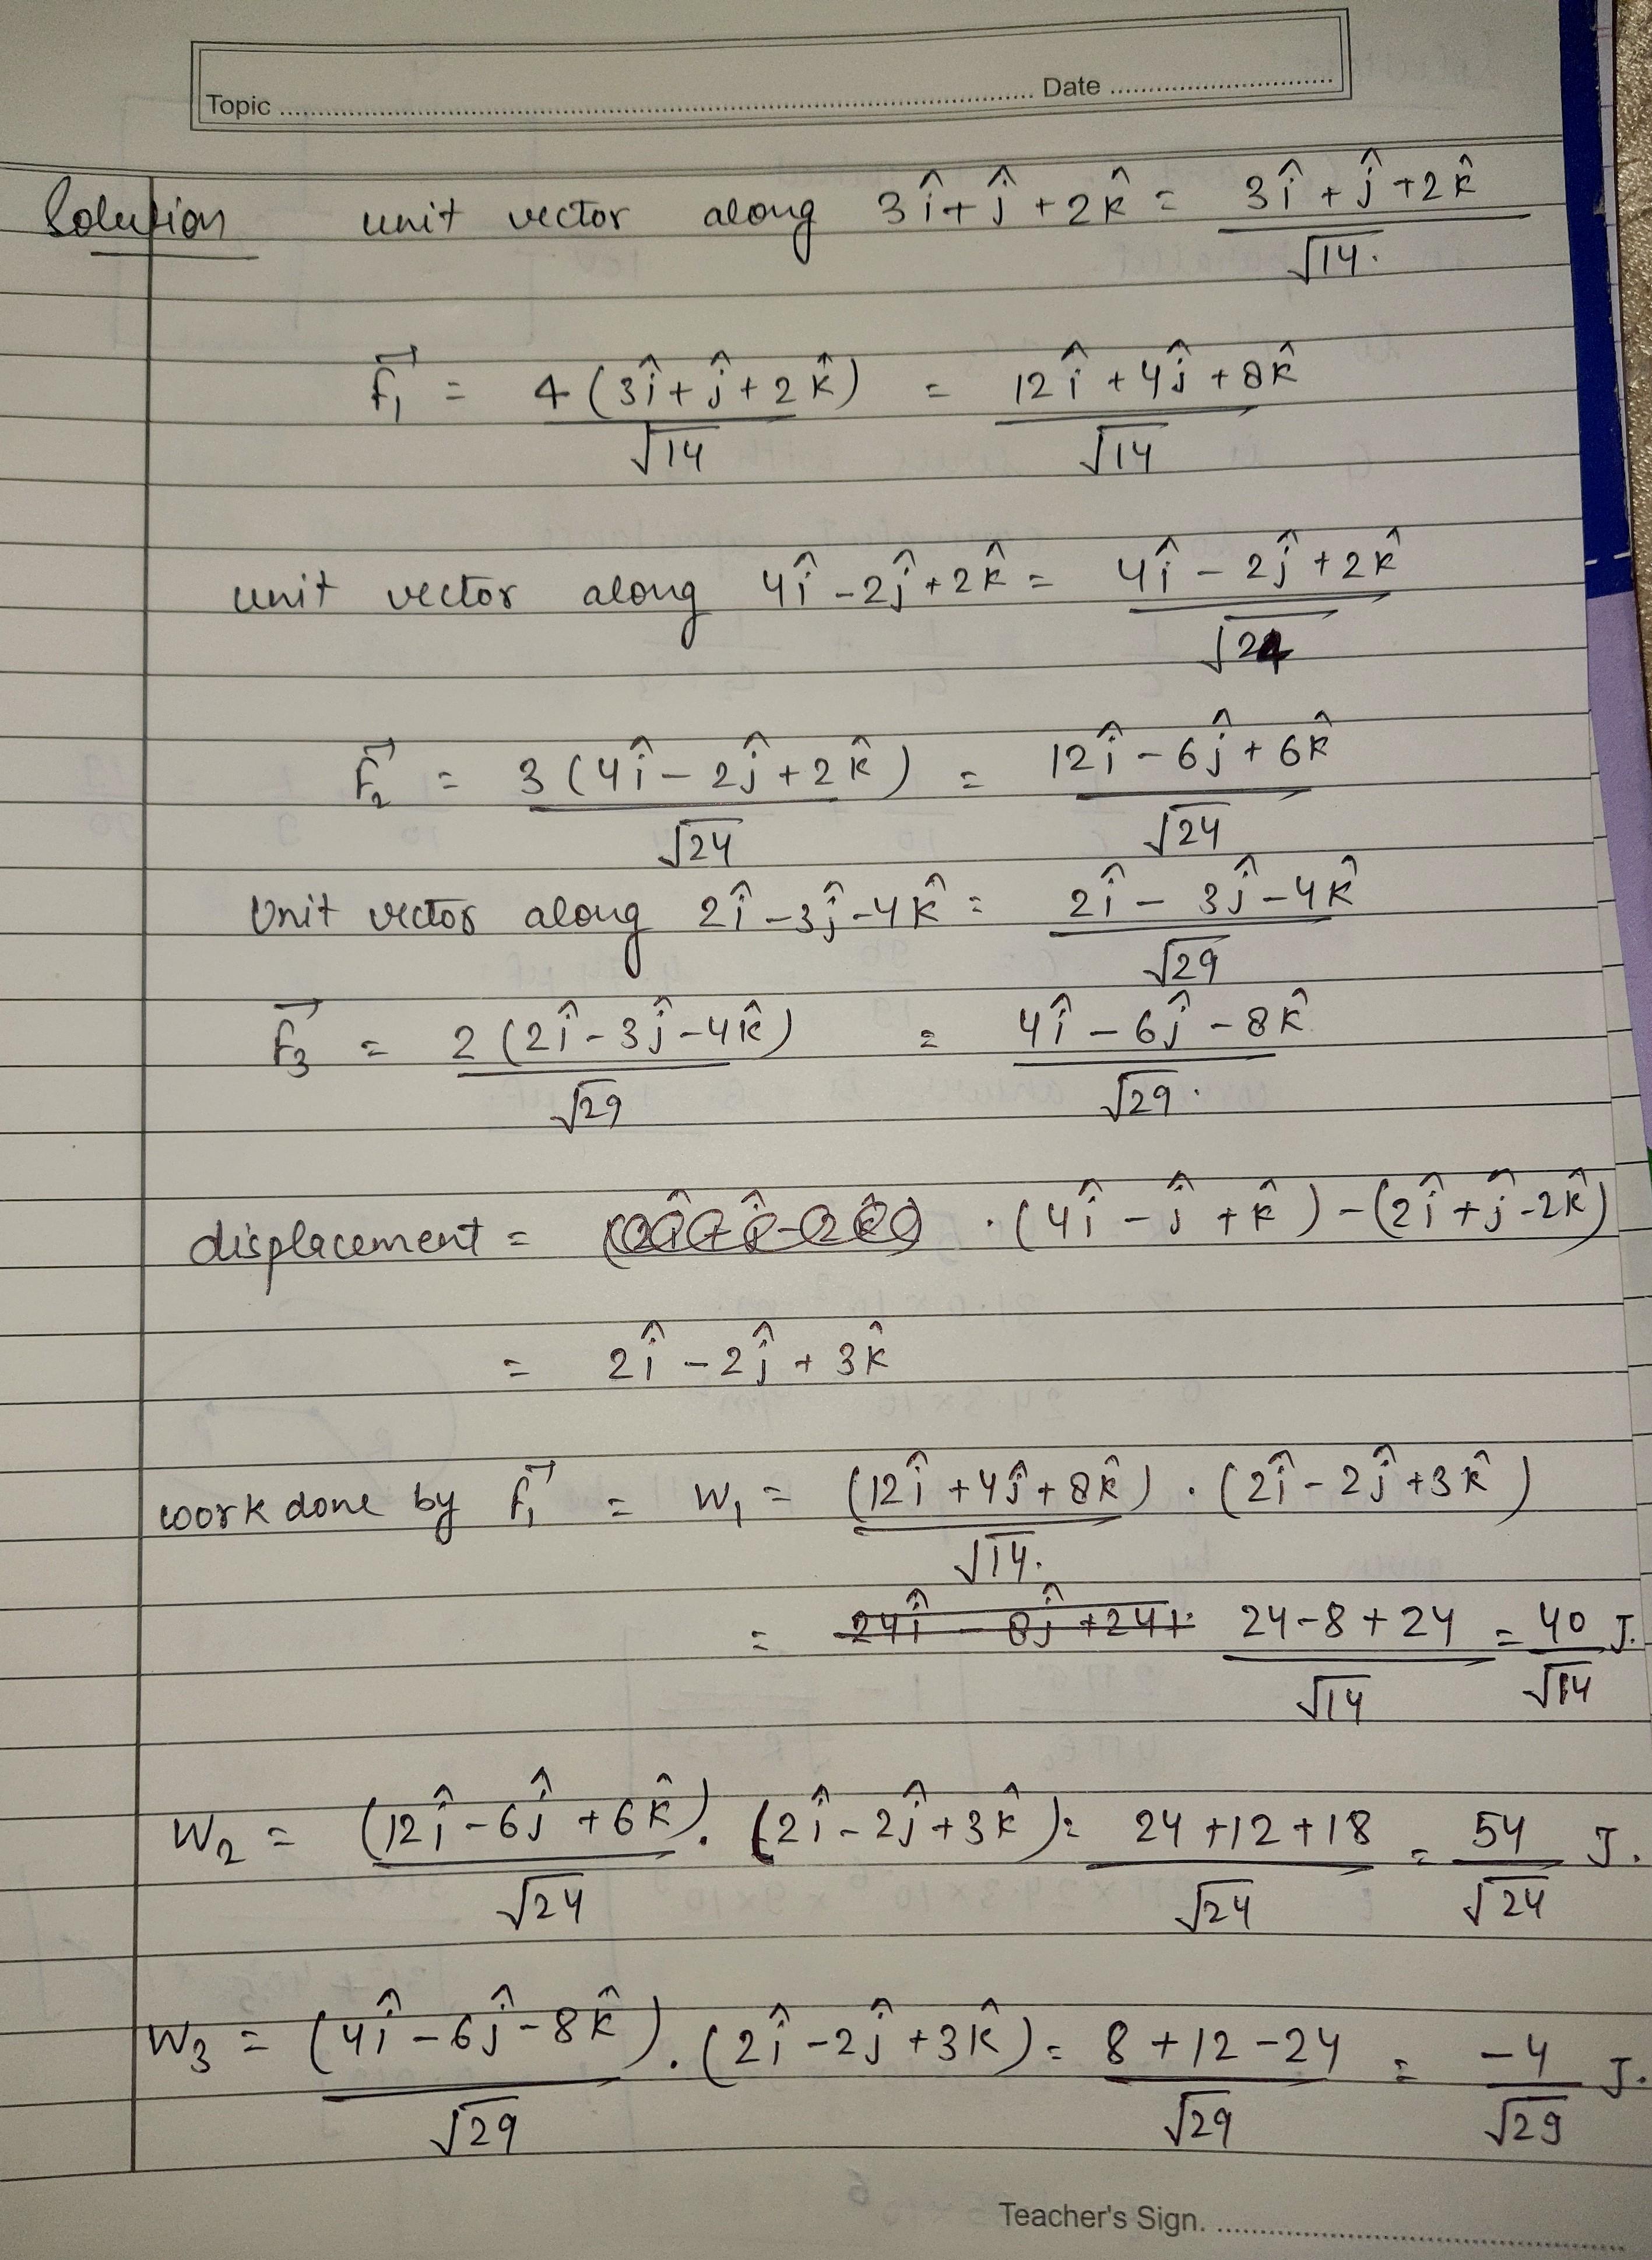 Topic ........ Date ........
Solution unit vector along 3î + ĵ + 2k̂ = (3î + ĵ + 2k̂)/√14.
F⃗₁ = 4(3î + ĵ + 2k̂)/√14 = (12î + 4ĵ + 8k̂)/√14
unit vector along 4î - 2ĵ + 2k̂ = (4î - 2ĵ + 2k̂)/√24
F⃗₂ = 3(4î - 2ĵ + 2k̂)/√24 = (12î - 6ĵ + 6k̂)/√24
Unit vector along 2î - 3ĵ - 4k̂ = (2î - 3ĵ - 4k̂)/√29
F⃗₃ = 2(2î - 3ĵ - 4k̂)/√29 = (4î - 6ĵ - 8k̂)/√29.
displacement = . (4î - ĵ + k̂) - (2î + ĵ - 2k̂)
= 2î - 2ĵ + 3k̂
work done by F⃗₁ = W₁ = (12î + 4ĵ + 8k̂)/√14. . (2î - 2ĵ + 3k̂)
= 24î - 8ĵ + 24 (24 - 8 + 24)/√14 = 40/√14 J.
W₂ = (12î - 6ĵ + 6k̂)/√24 . (2î - 2ĵ + 3k̂) = (24 + 12 + 18)/√24 = 54/√24 J.
W₃ = (4î - 6ĵ - 8k̂)/√29 . (2î - 2ĵ + 3k̂) = (8 + 12 - 24)/√29 = -4/√29 J.
Teacher's Sign. ........